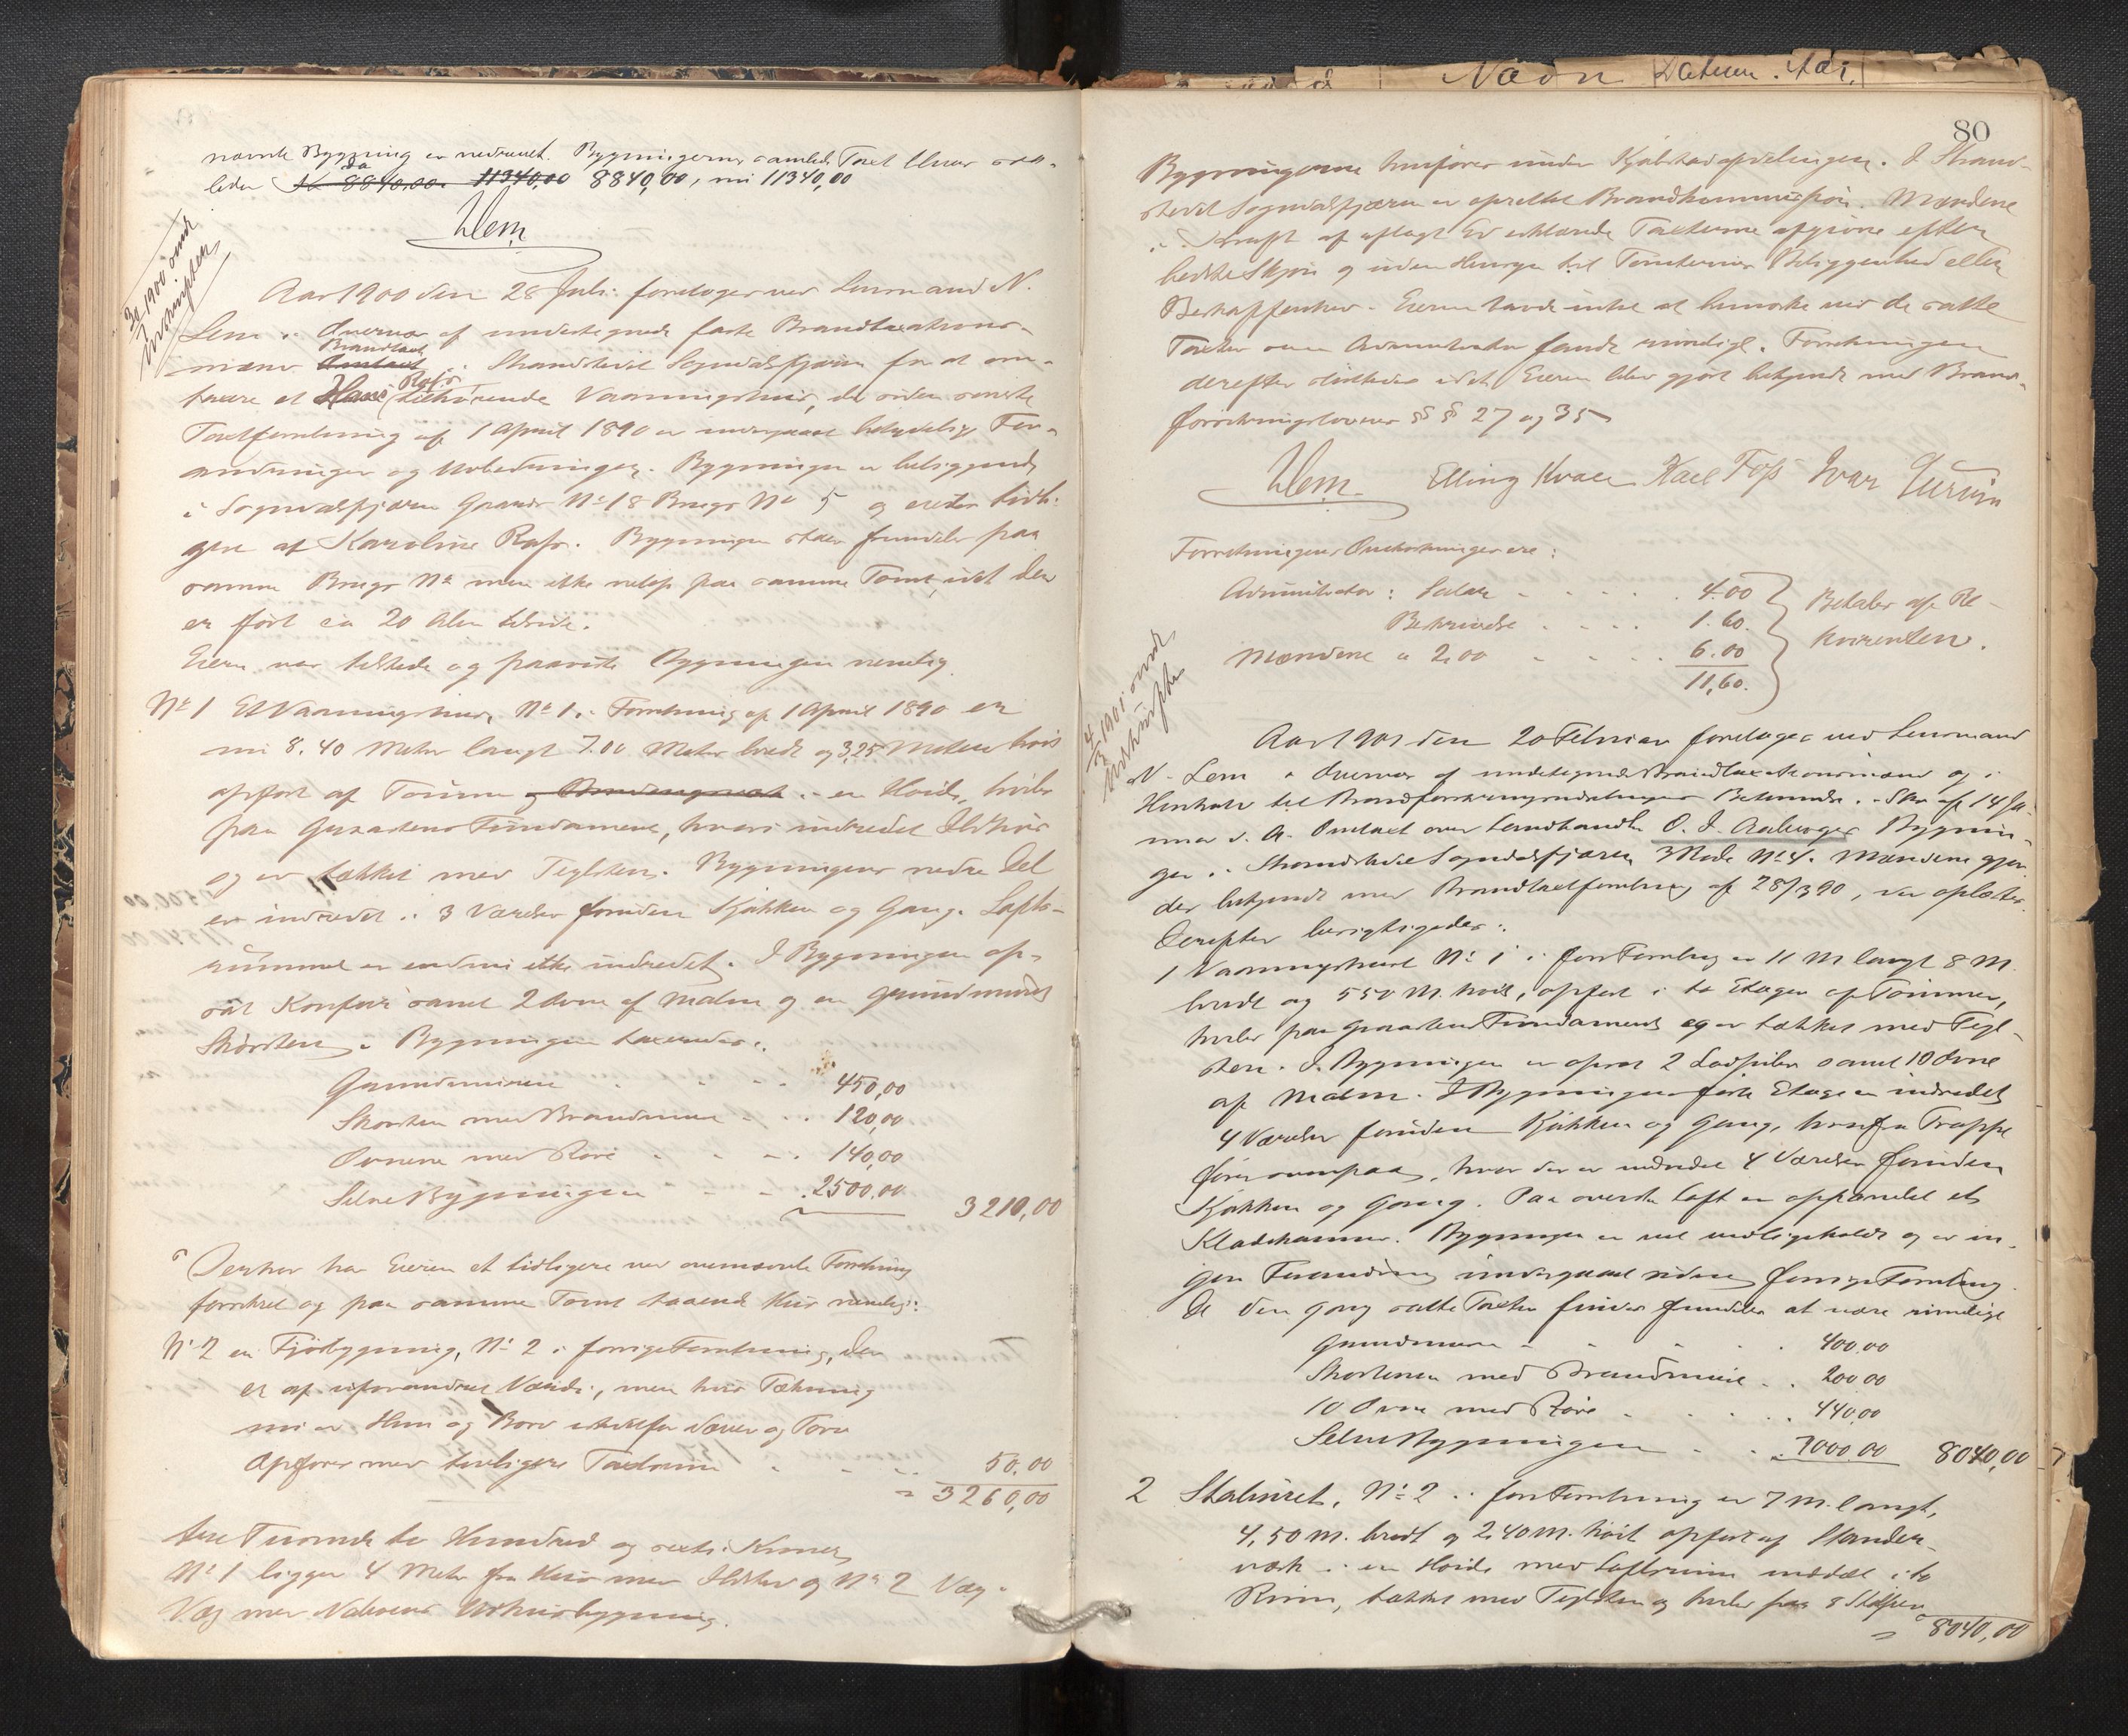 nævnte Bygning er nedrevet. Bygningernes samlede Taxt bliver saa-
ledes Kr 8840,00. 11340,00 da 8840,00, nu 11340,00
NLem
3/8 1900 sendt
Udskriften
Aar 1900 den 28 Juli foretoges ved Lensmand N.
Lem i Overvær af undertegnede faste Brandtaxations-
mænd Omtaxt Brandtaxt i Strandstedet Sogndalsfjæren for at om-
taxere et Hans Rafs tilhørende Vaaningshus, da siden seneste
Taxtforretning af 1 April 1890 er undergaaet betydelige For-
andringer og Udbedringer. Bygningen er beliggende
i Sogndalsfjæren Gaards No 18 Brugs No 5 og eiedes tidli-
gere af Karoline Rafs. Bygningen staar fremdeles paa
samme Brugs No men ikke netop paa samme Tomt, idet den
er flyt ca 20 Alen tilside.
Eieren var tilstede og paaviste Bygningen nemlig
No 1 Et Vaaningshus, No 1 i Forretning af 1 April 1890 er
nu 8.40 Meter langt 7.00 Meter bredt og 3,25 Meter høit
opført af Tømmer og Bindingsverk i en Høide, hviler
paa Graastens Fundament, hvori indredet Ildhus
og er tækket med Teglsten. Bygningens nedre Del
er indredet i 3 Værelser foruden Kjøkken og Gang. Lofts-
rummet er endnu ikke indredet. I Bygningen op-
sat Komfur samt 2 Ovne af Malm og en grundmuret
Skorsten. Bygningen taxeredes:
Grundmuren - - - 450,00
Skorsten med Brandmur - - 120,00
Ovnene med Rør - - - 140,00
Selve Bygningen - - 2500,00 3210,00
Derhos har Eieren et tidligere ved ovennævnte Forretning
forsikret og paa samme Tomt staaende Hus nemlig:
No 2 en Fjøsbygning, No 2 i forrige Forretning, den
er af uforandret Værdi, men hvis Tækning
nu er Hun og Bord istedetfor Næver og Torv
Opføres med tidligere Taxtsum - - - 50,00
= 3260,00
tre Tusinde to Hundred og sexti Kroner
No 1 ligger 4 Meter fra Hus med Ildsted og No 2 Væg i
Væg med Naboens Udhusbygning.
80
Bygningerne henføres under Kjøbstadafdelingen. I Strand-
stedet Sogndalsfjæren er oprettet Brandkommission. Mændene
i Kraft af aflagt Ed erklærede Taxterne afgivne efter
bedste Skjøn og uden Hensyn til Tomternes Beliggenhed eller
Beskaffenhed. Eieren havde intet at bemærke ved de satte
Taxter som Administrator fandt rimelige. Forretningen
derefter sluttedes idet Eieren blev gjort bekjendt med Brand-
forsikringslovens §§ 27 og 35
NLem Elling Kvale Karl Foss Ivar
Forretningens Omkostninger ere:
Administrator: Salær - - - 4.00
Betaler af Re-
Beskrivelse - - - 1.60.
kvirenten.
Mændene a 2,00 - - - 6.00
11,60.
1901 sendt
Udskriften
Aar 1901 den 20 Februar foretoges ved Lensmand
N. Lem i Overvær af undertegnede Brandtaxationsmænd og i
Henhold til Brandforsikringsindretningens Bestemmelse i Skr. af 14 Ja-
nuar d. A. Omtaxt over Landhandler O. J. Aabergs Bygnin-
ger i Strandstedet Sogndalsfjæren 3 Rode No 4. Mændene gjor-
des bekjendt med Brandtaxtforretning af 28/3 90, der oplæstes.
Derefter besigtigedes:
1 Vaaningshuset No 1 i forr. Forretning er 11 M langt 8 M.
bredt og 5 50 M. høit, opført i to Etager af Tømmer,
hviler paa Graastens Fundament og er tækket med Tegl-
sten. I Bygningen er opsat 2 Ladpiber samt 10 Ovne
af Malm. I Bygningens første Etage er indredet
4 Værelser foruden Kjøkken og Gang, hvorfra Trappe
fører ovenpaa, hvor der er indredet 4 Værelser foruden
Kjøkken og Gang. Paa øverste Loft er oppanelet et
Klædekammer. Bygningen er vel vedligeholdt og er in-
gen Forandring undergaaet siden forrige Forretning.
De den gang satte Taxter findes fremdeles at være rimelige
Grundmuren - - - - 400.00
Skorstenen med Brandmure - - 200 00
10 Ovne med Rør - - - - 440,00
Selve Bygningen - - 7000.00 8040,00
2 Staburet, No 2 i forr Forretning er 7 M. langt,
4,50 M. bredt og 2.40 M. høit opført af Stander-
værk i en Høide med Loftsrum inddelt i to
Rum, tækket med Teglsten og hviler paa 8 Stolper
= 8040,00